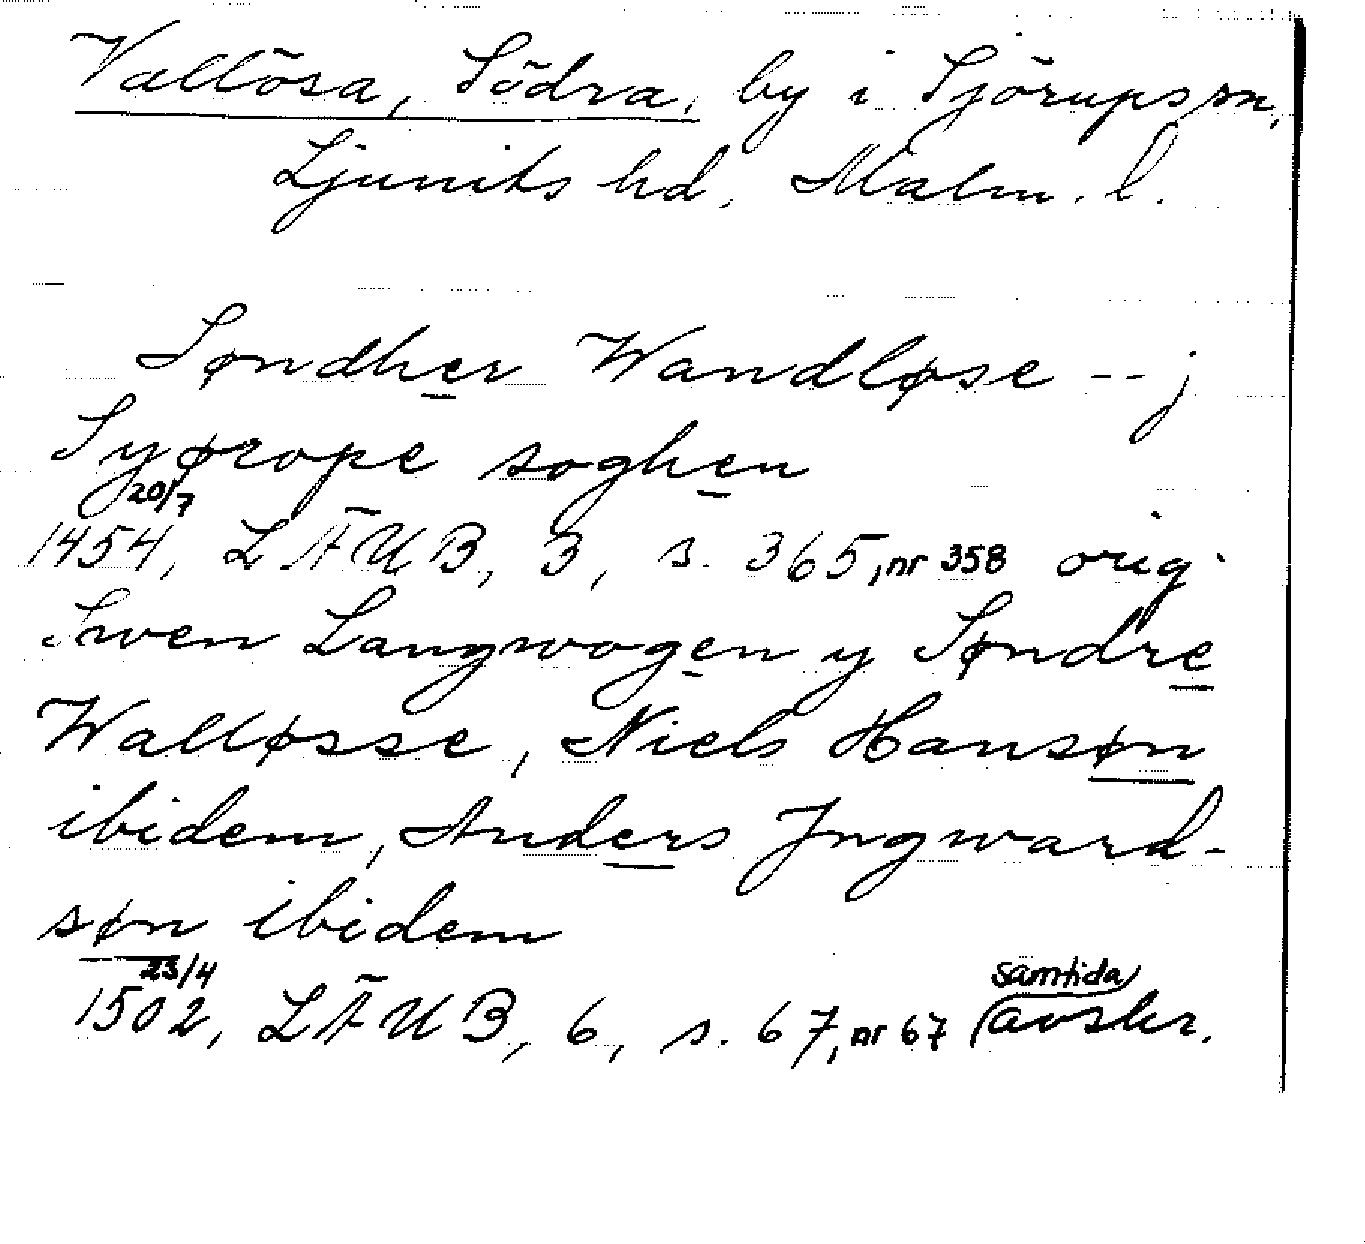 Vallösa, Södra, by i Sjörups sn,
Ljunits hd, Malm. l.
Søndher Wandløse -- j
Syørope soghen
20/7
1454, LÄUB, 3, s. 365, nr 358 orig.
Swen Langwogen y Søndre
Walløsse, Niels Hansøn
ibidem, Anders Jngward-
søn ibidem
23/4 samtida
1502, LÄUB, 6, s. 67, nr 67 (avskr.